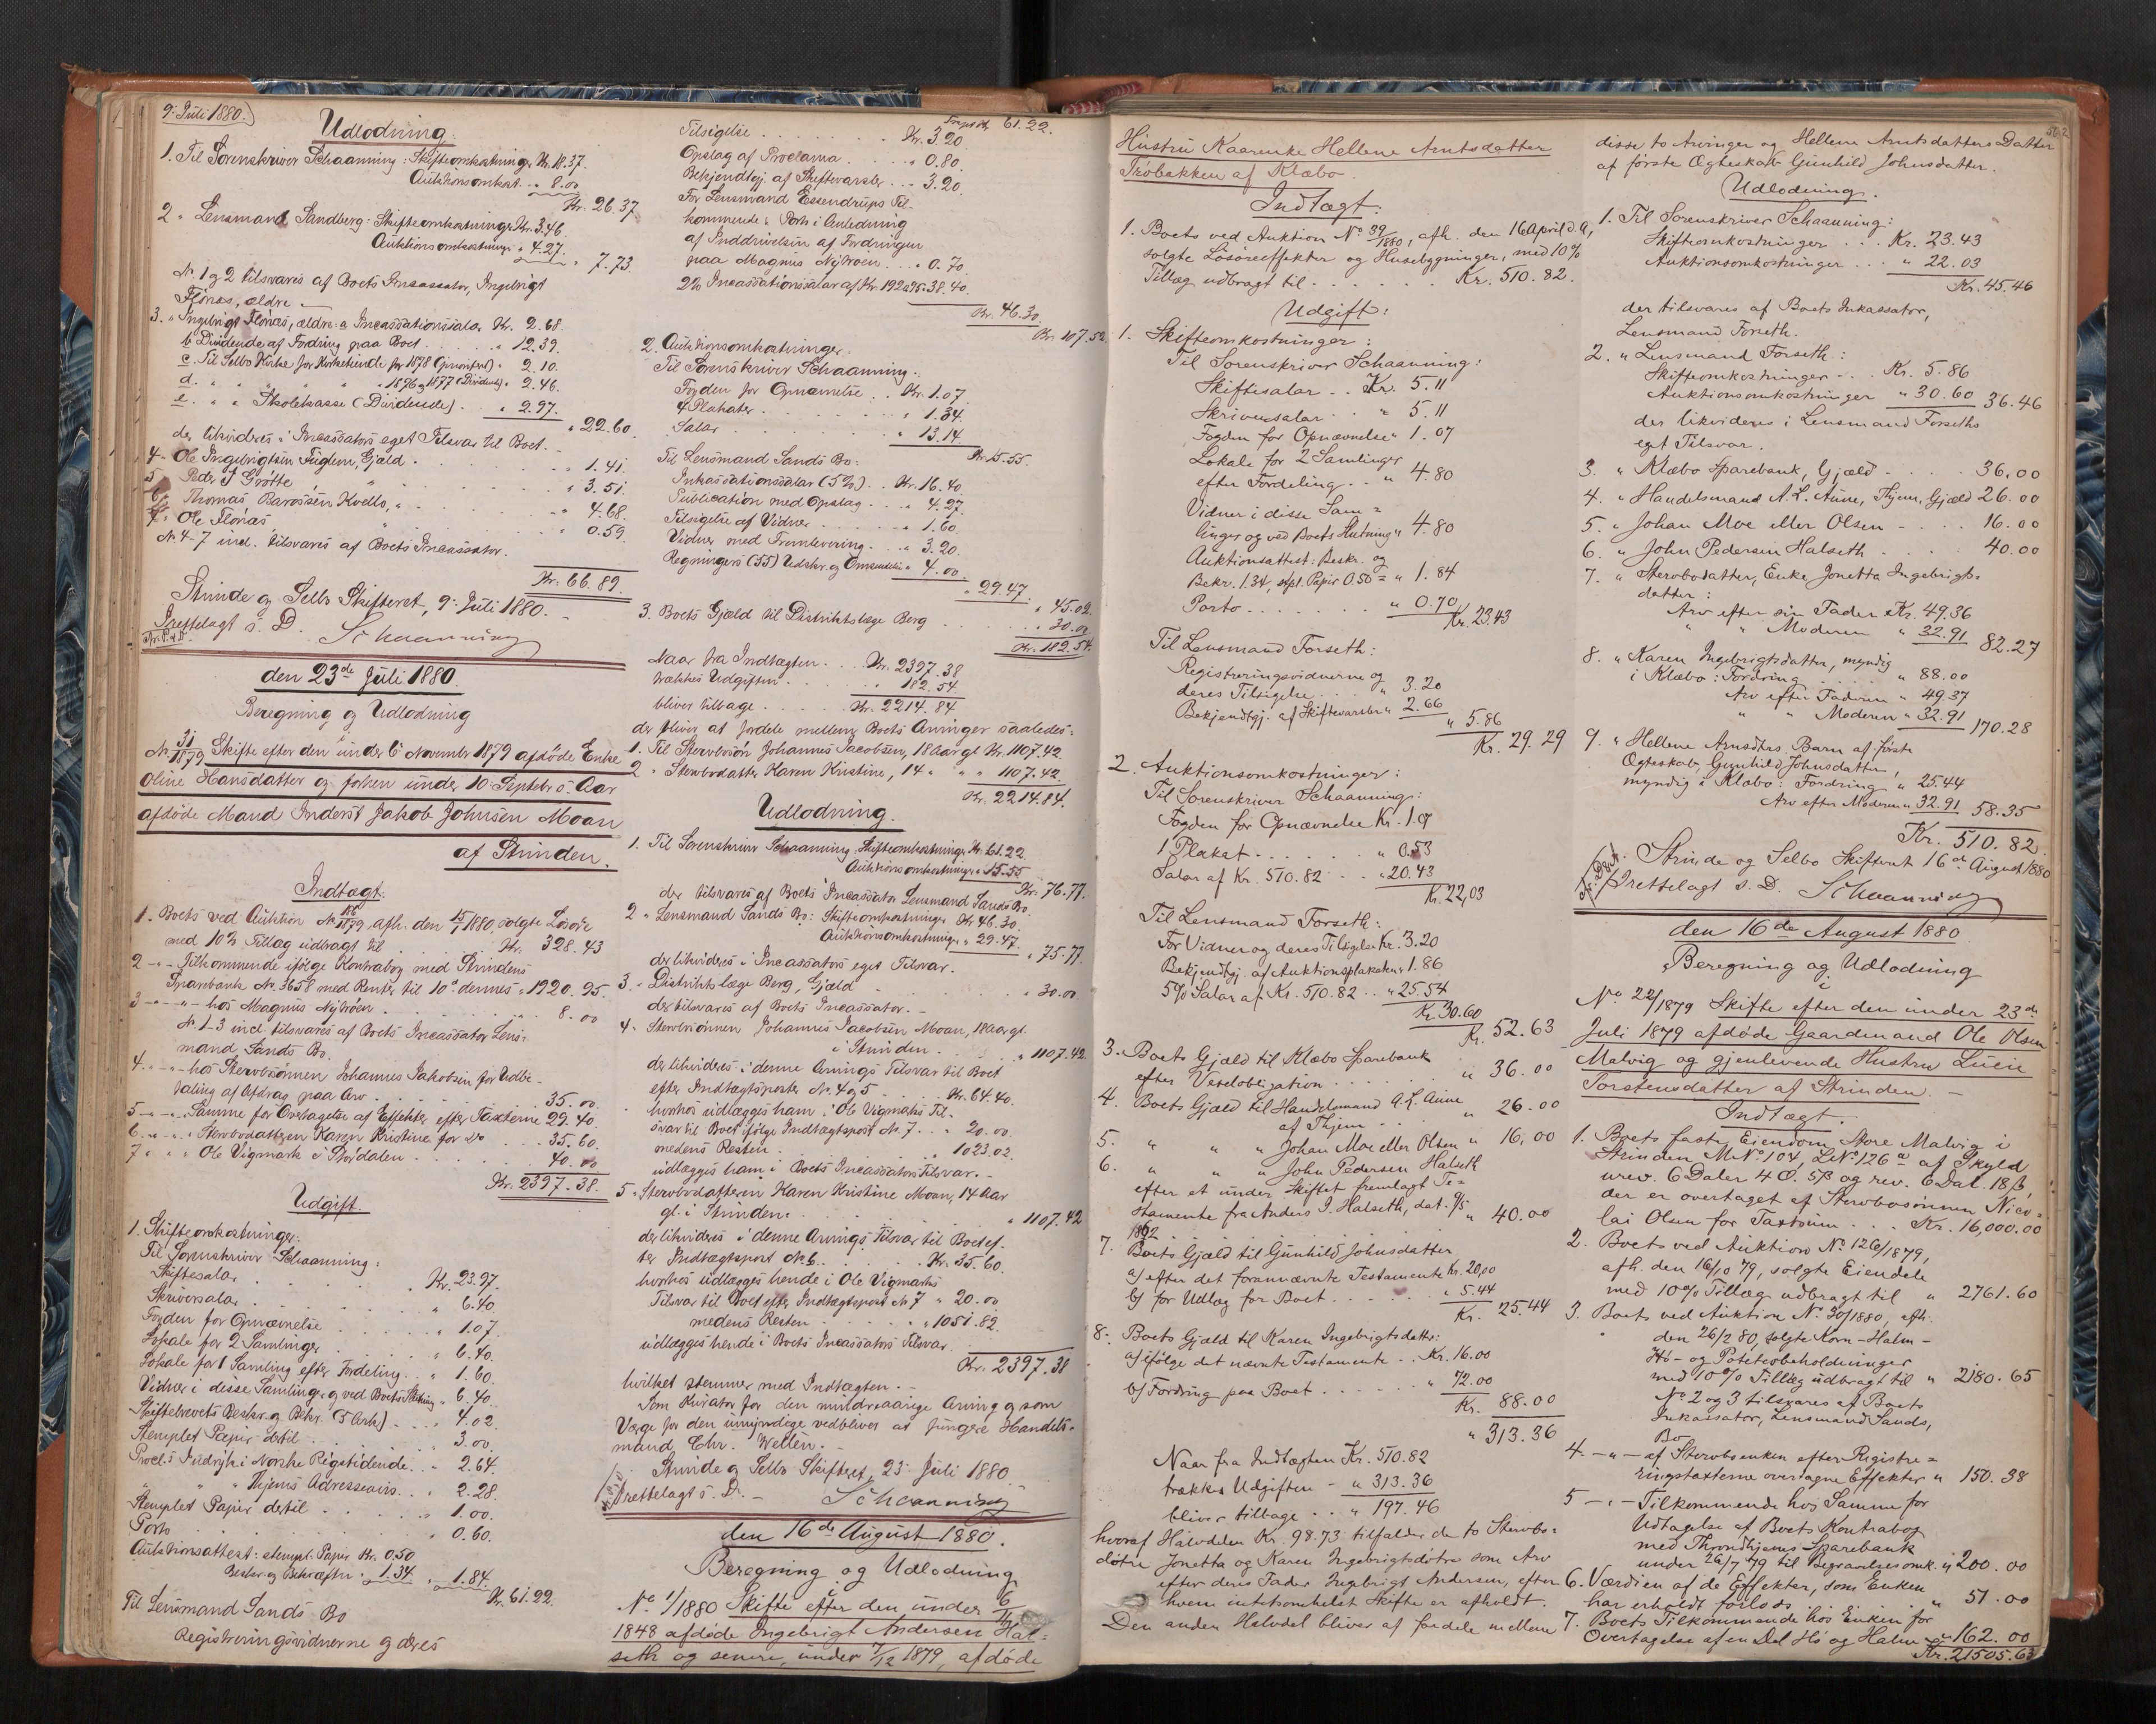 9. Juli 1880.
Udlodning:
1. Til Sorenskriver Schaanning: Skifteomkostninger Kr. 18.37.
Auktionsomkost. „ 8.00
Kr. 26.37
2 „ Lensmand Sandberg: Skifteomkostninger Kr. 3.46
Auktionsomkostninger „ 4.27.
„ 7.73.
No. 1 og 2 tilsvares af Boets Incassator, Ingebrigt
Flønæs, ældre.
3. „ Ingebrigt Flønæs, ældre: a Incassationssalar Kr. 2.68.
b Dividende af Fordring paa Boet . . „ 12.39.
c. Til Selbo Kirke for Kirketiende for 1878 (prioritert) „ 2.10.
d. „ „ „ „ „ 1876 og 1877 (Dividende) „ 2.46.
e. „ „ Skolekasse (Dividende) . . „ 2.97.
„ 22.60.
der likvideres i Incassators eget Tilsvar til Boet.
4 „ Ole Ingebrigtsen Fuglem, Gjæld . . . „ 1.41.
5 „ Peder J Grøtte, „ . . . „ 3.51.
6 „ Thomas Kvello, „ . . „ 4.68.
7 „ Ole Flønæs „ . . „ 0.59.
No. 4-7 incl. tilsvares af Boets Incassator.
Kr. 66.89.
Strinde og Selbo Skifteret, 9. Juli 1880.
Fremlagt s. D. Schaanning
den 23de Juli 1880.
Beregning og Udlodning
i
No. 31/1879 Skifte efter den under 6 November 1879 afdøde Enke
Oline Hansdatter og forhen under 10 Septebr s. Aar
afdøde Mand Inderst Jakob Johnsen Moan
af Strinden.
Indtægt:
1. Boets ved Auktion No. 156/1879, afh. den 15/1 1880, solgte Løsøre
med 10% Tillæg udbragt til . . . Kr. 328.43
2 „ Tilkommende ifølge Kontrabog med Strindens
Sparebank No. 3658 med Renter til 10de dennes „ 1920.95.
3 „ „ hos Magnus Nybroen . . . „ 8.00
No. 1-3 incl tilsvares af Boets Incassator Lens-
mand Sands Bo.
4. „ „ hos Stervbosønnen Johannes Jakobsen for Udbe-
taling af Afdrag paa Arv . . . 35.00
5 „ „ Samme for Overtagelse af Effekter efter Taxterne 29.40.
6. „ „ Stervbodatteren Karen Kristine for do . . 35.60.
7 „ „ Ole Vigmark i Stjørdalen . . . 40.00
Kr. 2397.38.
Udgift.
1. Skifteomkostninger:
Til Sorenskriver Schaanning:
Skiftesalar . . . Kr. 23.97.
Skriversalar . . . „ 6.40.
Fogden for Opnævnelse . . . „ 1.07.
Lokale for 2 Samlinger . . . „ 6.40.
Lokale for 1 Samling efter Fordeling . . „ 1.60.
Vidner i disse Samlinger og ved Boets Slutning „ 6.40
Skiftebrevets Beskr. og Bekr. (3 Ark) . . „ 4.02
Stemplet Papir dertil . . . „ 3.00.
Procl.s Indrykk. i Norske Rigstidende . . „ 2.64.
„ „ „ Thjems Adresseavis . . „ 2.28.
Stemplet Papir dertil . . . „ 1.00.
Porto . . . „ 0.60.
Auktionsattest: stempl. Papir Kr. 0.50
Beskr. og Bekræftn. „ 1.34. „ 1.84.
Kr. 61.22.
Til Lensmand Sands Bo
Registreringsvidnerne og deres
Trspt Kr. 61.22.
Tilsigelse . . . Kr. 3.20
Opslag af Proclama . . . „ 0.80.
Bekjendtgj. af Skiftevarsler . . „ 3.20.
For Lensmand Essendrups Til-
kommende: Porto i Anledning
af Inddrivelsen af Fordringen
paa Magnus Nybroen . . . „ 0.70.
2% Incassationssalar af Kr. 1920.95. 38.40.
Kr. 46.30.
Kr. 107.52.
2. Auktionsomkostninger:
Til Sorenskriver Schaanning:
Fogden for Opnævnelse . . Kr. 1.07.
4 Plakater . . . „ 1.34.
Salar . . . „ 13.14.
Kr. 15.55.
Til Lensmand Sands Bo:
Inkassationssalar (5%) . . Kr. 16.40.
Publication med Opslag . . „ 4.27.
Tilsigelse af Vidner . . . „ 1.60
Vidner med Fremlevering . . „ 3.20.
Regningers (55) Udskr. og Omsendelse „ 4.00.
„ 29.47.
„ 45.02.
3. Boets Gjæld til Distriktslæge Berg . . . „ 30.00
Kr. 182.54.
Naar fra Indtægten . . Kr. 2397.38
trækkes Udgiften . . . „ 182.54.
bliver tilbage . . . Kr. 2214.84
der bliver at fordele mellem Boets Arvinger saaledes:
1. Til Stervbosøn Johannes Jacobsen, 18 Aar gl Kr. 1107.42
2 „ Stervbodatter Karen Kristine, 14 „ „ „ 1107.42.
Kr. 2214.84.
Udlodning.
1. Til Sorenskriver Schaanning Skifteomkostninger Kr. 61.22
Auktionsomkostninger „ 15.55
Kr. 76.77.
der tilsvares af Boets Incassator Lensmand Sands Bo.
2 „ Lensmand Sands Bo: Skifteomkostninger Kr. 46.30.
Auktionsomkostninger „ 29.47
„ 75.77.
der likvideres i Incassators eget Tilsvar.
3. „ Distriktslæge Berg, Gjæld . . . „ 30.00.
der tilsvares af Boets Incassator.
4. Stervbosønnen Johannes Jacobsen Moan, 18 Aar gl.
i Strinden . . . „ 1107.42.
der likvideres i denne Arvings Tilsvar til Boet
efter Indtægtsposter No. 4 og 5 . . Kr. 64.40.
hvorhos udlægges ham i Ole Vigmarks Til-
svar til Boet ifølge Indtægtspost No. 7 . . „ 20.00.
medens Resten . . . „ 1023.02.
udlægges ham i Boets Incassators Tilsvar.
5 „ Stervbodatteren Karen Kristine Moan, 14 Aar
gl. i Strinden . . . „ 1107.42
der likvideres i denne Arvings Tilsvar til Boet ef-
ter Indtægtspost No. 6 . . . Kr. 35.60.
hvorhos udlægges hende i Ole Vigmarks
Tilsvar til Boet efter Indtægtspost No. 7 „ 20.00
medens Resten . . . „ 1051.82.
udlægges hende i Boets Incassators Tilsvar.
Kr. 2397.38
hvilket stemmer med Indtægten.
Som Kurator for den mindreaarige Arving og som
Værge for den umyndige vedbliver at fungere Handels-
mand Chr. Wettèn.
Strinde og Selbo Skifteret, 23 Juli 1880
Fremlagt s. D. Schaanning
den 16de August 1880.
Beregning og Udlodning
i
No. 1/1880 Skifte efter den under 6/11
1848 afdøde Ingebrigt Andersen Hal-
seth og senere, under 7/12 1879, afdøde
302
Hustru Kaarenke Hellene Arntsdatter
Trøbakken af Klæbo.
Indtægt:
1. Boets ved Auktion No. 39/1880, afh. den 16 April d. A,
solgte Løsøreeffekter og Husebygninger, med 10%
Tillæg udbragt til . . . Kr. 510.82.
Udgift:
1. Skifteomkostninger:
Til Sorenskriver Schaanning:
Skiftesalar . . Kr. 5.11
Skriversalar . . „ 5.11
Fogden for Opnævnelse „ 1.07
Lokale for 2 Samlinger
efter Fordeling . . „ 4.80
Vidner i disse Sam-
linger og ved Boets Slutning „ 4.80
Auktionsattest: Beskr. og
Bekr. 1.34, stpl. Papir 0.50 = „ 1.84
Porto . . . „ 0.70
Kr. 23.43
Til Lensmand Forseth:
Registreringsvidnerne og
deres Tilsigelse . . „ 3.20
Bekjendtgj. af Skiftevarsler „ 2.66
„ 5.86
Kr. 29.29
2. Auktionsomkostninger:
Til Sorenskriver Schaanning:
Fogden for Opnævnelse Kr. 1.07
1 Plakat . . . „ 0.53
Salar af Kr. 510.82 . . „ 20.43
Kr. 22,03
Til Lensmand Forseth:
For Vidner og deres Tilsigelse Kr. 3.20
Bekjendtgj. af Auktionsplakaten „ 1.86
5% Salar af Kr. 510.82 . . „ 25.54
Kr. 30.60
Kr. 52.63
3. Boets Gjæld til Klæbo Sparebank
efter Vexelobligation . . . „ 36.00
4. Boets Gjæld til Handelsmand A. L. Aune
af Thjem . . . „ 26.00
5. „ „ „ Johan Moe eller Olsen „ 16,00
6. „ „ „ John Pedersen Halseth
efter et under Skiftet fremlagt Te-
stamente fra Anders I. Halseth, dat. 9/5
1862 . . . „ 40.00
7. Boets Gjæld til Gunhild Johnsdatter
a) efter det forannævnte Testamente Kr. 20,00
b) for Udlæg for Boet . . . „ 5.44
Kr. 25.44
8. Boets Gjæld til Karen Ingebrigtsdatter:
a) ifølge det nævnte Testamente . . Kr. 16.00
b) Fordring paa Boet . . . „ 72.00
Kr. 88.00
„ 313.36
Naar fra Indtægten Kr. 510.82
trækkes Udgiften „ 313.36
bliver tilbage . . „ 197.46
hvoraf Halvdelen Kr. 98.73 tilfalder de to Stervbo-
døtre Jonetta og Karen Ingebrigtsdøtre som Arv
efter deres Fader Ingebrigt Andersen, efter
hvem intetsomhelst Skifte er afholdt.
Den anden Halvdel bliver at fordele mellem
disse to Arvinger og Hellene Arntsdatters Datter
af første Ægteskab Gunhild Johnsdatter.
Udlodning.
1. Til Sorenskriver Schaanning:
Skifteomkostninger . . . Kr. 23.43
Auktionsomkostninger . . „ 22.03
Kr. 45.46
der tilsvares af Boets Inkassator,
Lensmand Forseth.
2. „ Lensmand Forseth:
Skifteomkostninger . . Kr. 5.86
Auktionsomkostninger „ 30.60 36.46
der likvideres i Lensmand Forseths
eget Tilsvar.
3. „ Klæbo Sparebank, Gjæld . . . 36,00
4. „ Handelsmand A. L. Aune, Thjem, Gjæld 26.00
5. „ Johan Moe eller Olsen . . . 16.00
6. „ John Pedersen Halseth . . . 40.00
7. „ Stervbodatter, Enke Jonetta Ingebrigts-
datter:
Arv efter sin Fader Kr. 49.36
„ „ Moderen „ 32.91 82.27
8. „ Karen Ingebrigtsdatter, myndig
i Klæbo: Fordring . . . „ 88.00
Arv efter Faderen „ 49.37
„ „ Moderen „ 32.91 170.28
9. „ Hellene Arnsdtrs. Barn af første
Ægteskab, Gunhild Johnsdatter,
myndig i Klæbo: Fordring „ 25.44
Arv efter Moderen „ 32.91 58.35
Kr. 510.82.
Strinde og Selbo Skifteret 16de August 1880
Fremlagt s. D. Schaanning
den 16de August 1880
Beregning og Udlodning
i
No. 22/1879 Skifte efter den under 23de
Juli 1879 afdøde Gaardmand Ole Olsen
Malvig og gjenlevende Hustru Lucie
Torstensdatter af Strinden.
Indtægt.
1. Boets faste Eiendom Store Malvig i
Strinden M No. 104, L No. 126a af Skyld
urev. 6 Daler 4 O. 5 β og rev. 6 Dal. 18 β,
der er overtaget af Stervbosønnen Nico-
lai Olsen for Taxtsum . . . Kr. 16,000.00
2. Boets ved Auktion No. 126/1879,
afh. den 16/10 79, solgte Eiendele
med 10% Tillæg udbragt til „ 2761.60
3. Boets ved Auktion No. 30/1880, afh.
den 26/2 80, solgte Korn - Halm -
Hø - og Potetesbeholdninger
med 10% Tillæg udbragt til „ 2180.65
No. 2 og 3 tilsvares af Boets
Inkassator, Lensmand Sands,
Bo
4. „ af Stervboenken efter Registre-
ringstaxterne overtagne Effekter „ 150.38
5 „ Tilkommende hos Samme for
Udtagelse af Boets Kontrabog
med Throndhjems Sparebank
under 26/7 79 til Begravelsesomk. „ 200.00
6. Værdien af de Effekter, som Enken
har erholdt forlods . . . „ 51.00
7. Boets Tilkommende hos Enken for
Overtagelse af en Del Hø og Halm „ 162.00
Kr. 21505.63